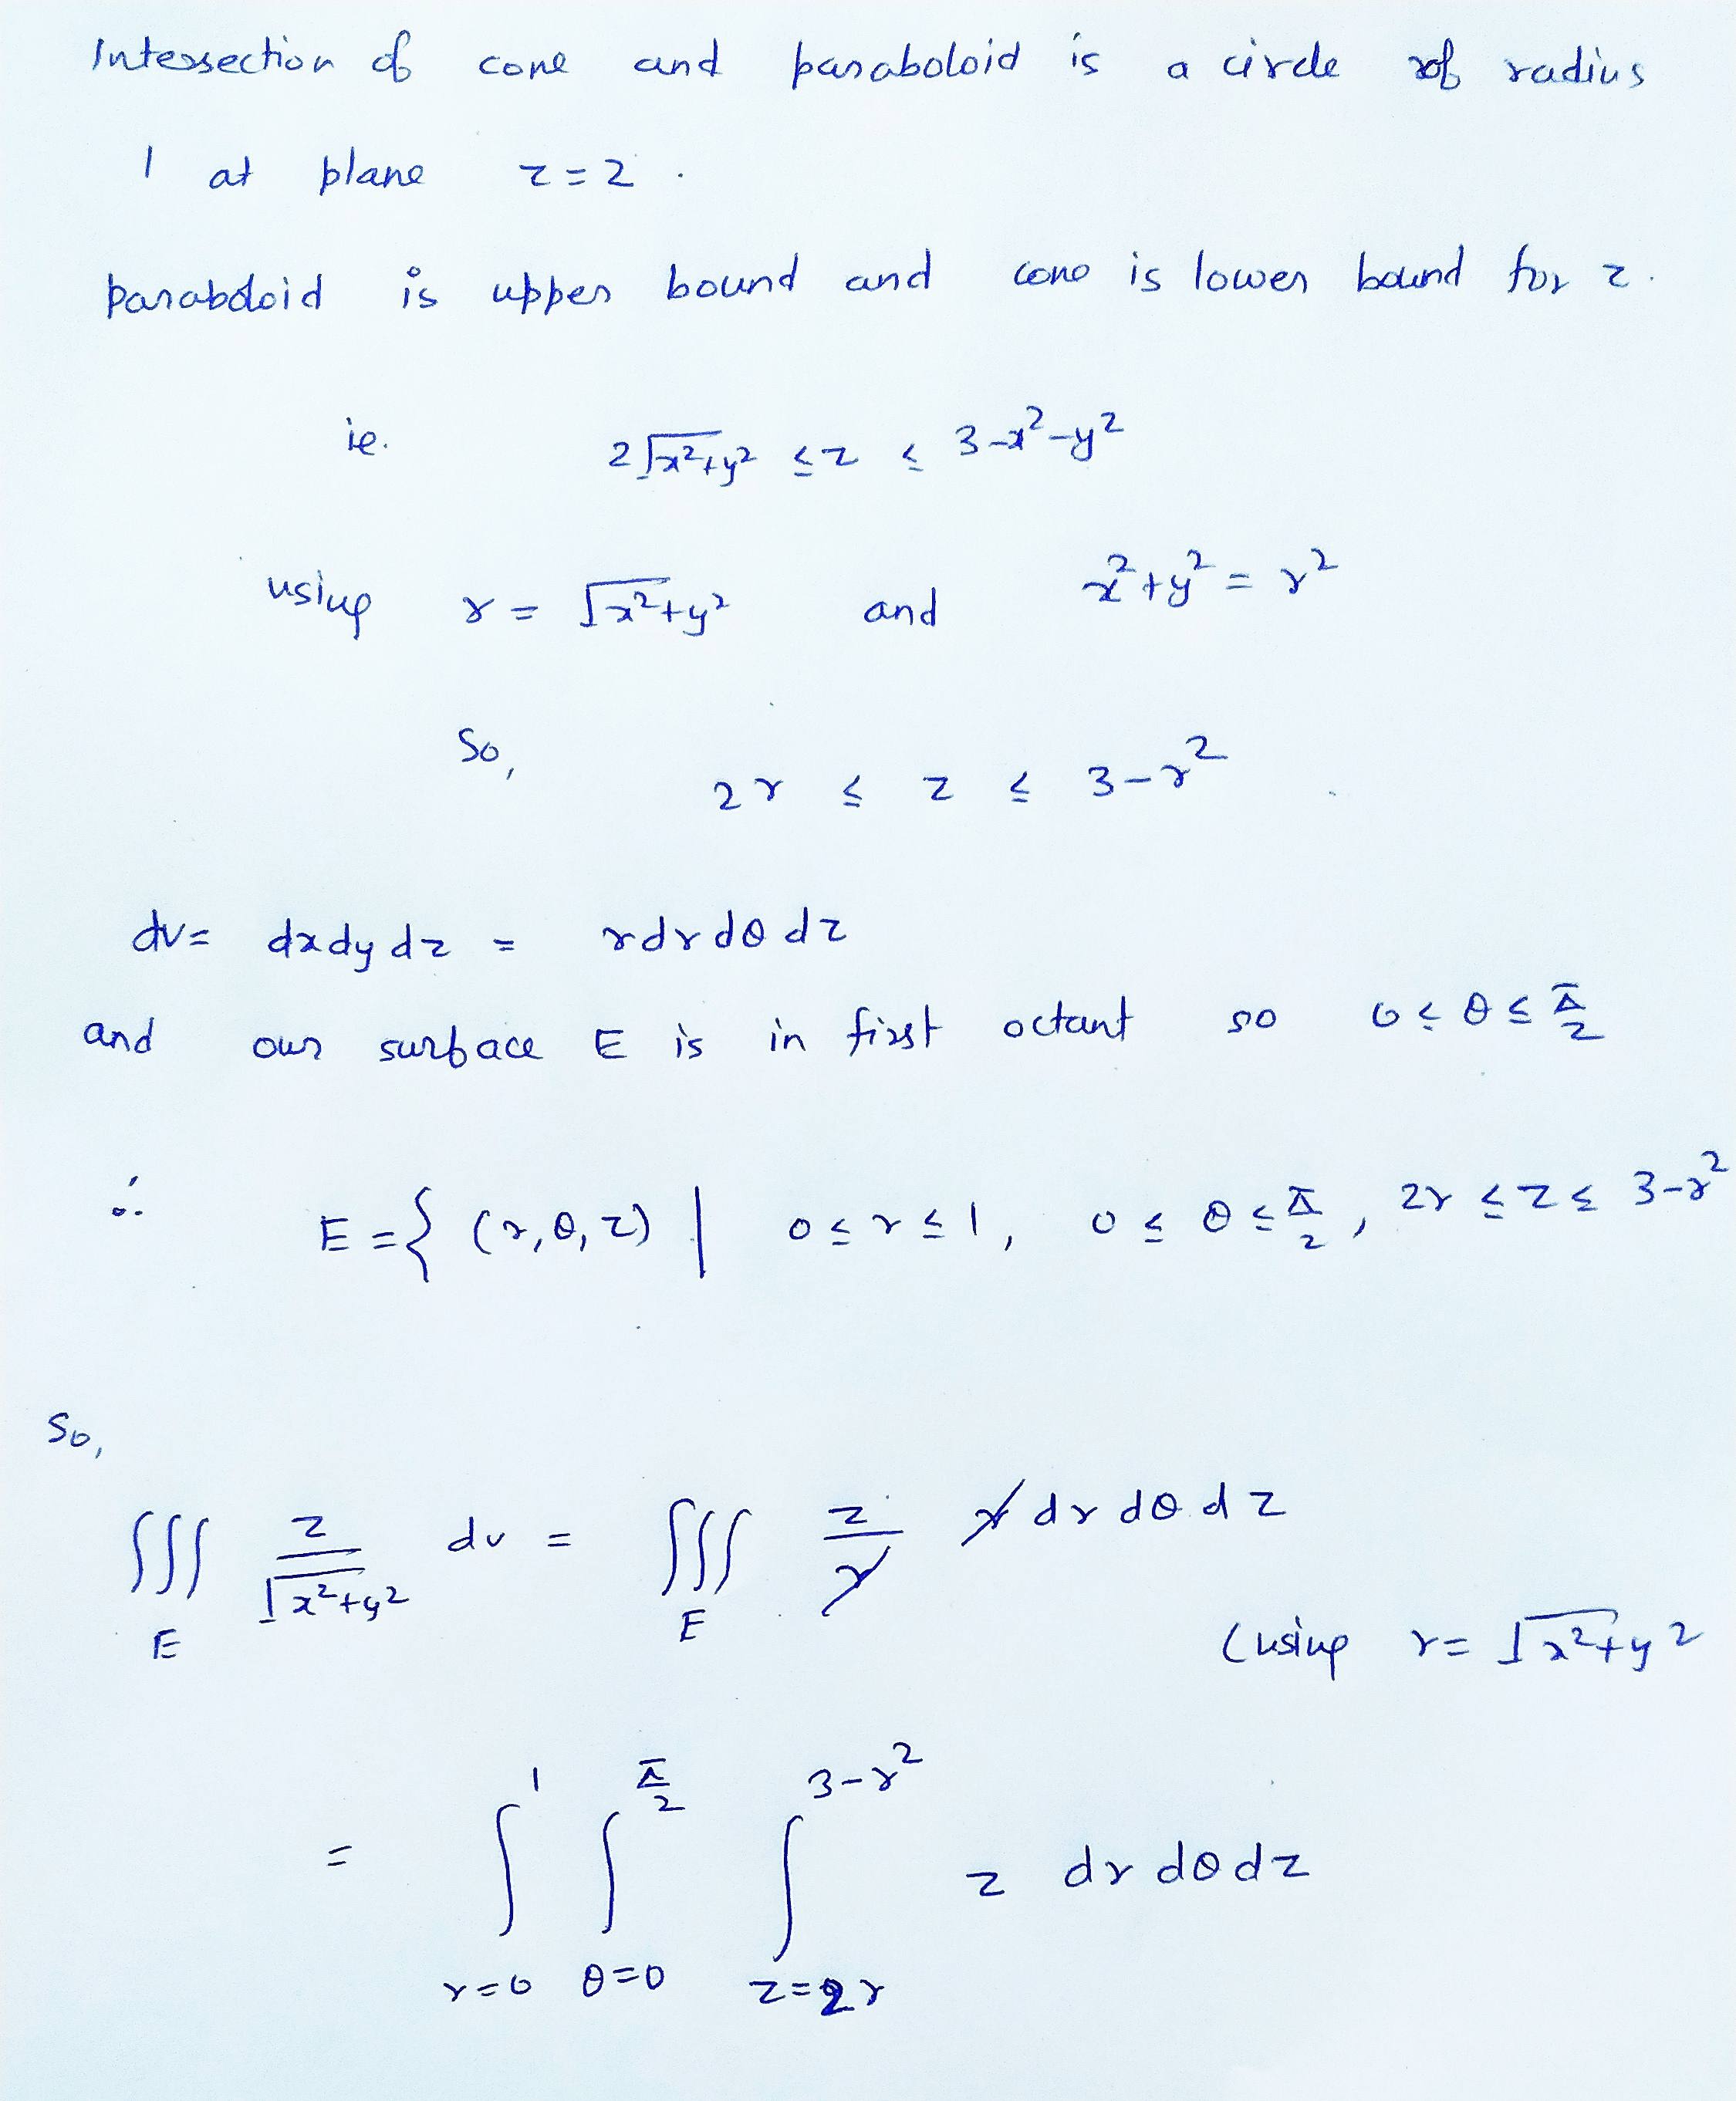 Intersection of cone and paraboloid is a circle of radius
1 at plane z = 2 .
paraboloid is upper bound and cone is lower bound for z .
ie. 2√x²+y² ≤ z ≤ 3-x²-y²
using r = √x²+y² and x²+y² = r²
So, 2r ≤ z ≤ 3-r²
dv = dxdydz = rdrdθdz
and our surface E is in first octant so 0 ≤ θ ≤ π/2
∴ E = { (r,θ,z) | 0 ≤ r ≤ 1, 0 ≤ θ ≤ π/2, 2r ≤ z ≤ 3-r²
So,
∭_E z/√x²+y² dv = ∭_E z/r r dr dθ dz
(using r = √x²+y²
= ∫_{r=0}^{1} ∫_{θ=0}^{π/2} ∫_{z=2r}^{3-r²} z dr dθ dz